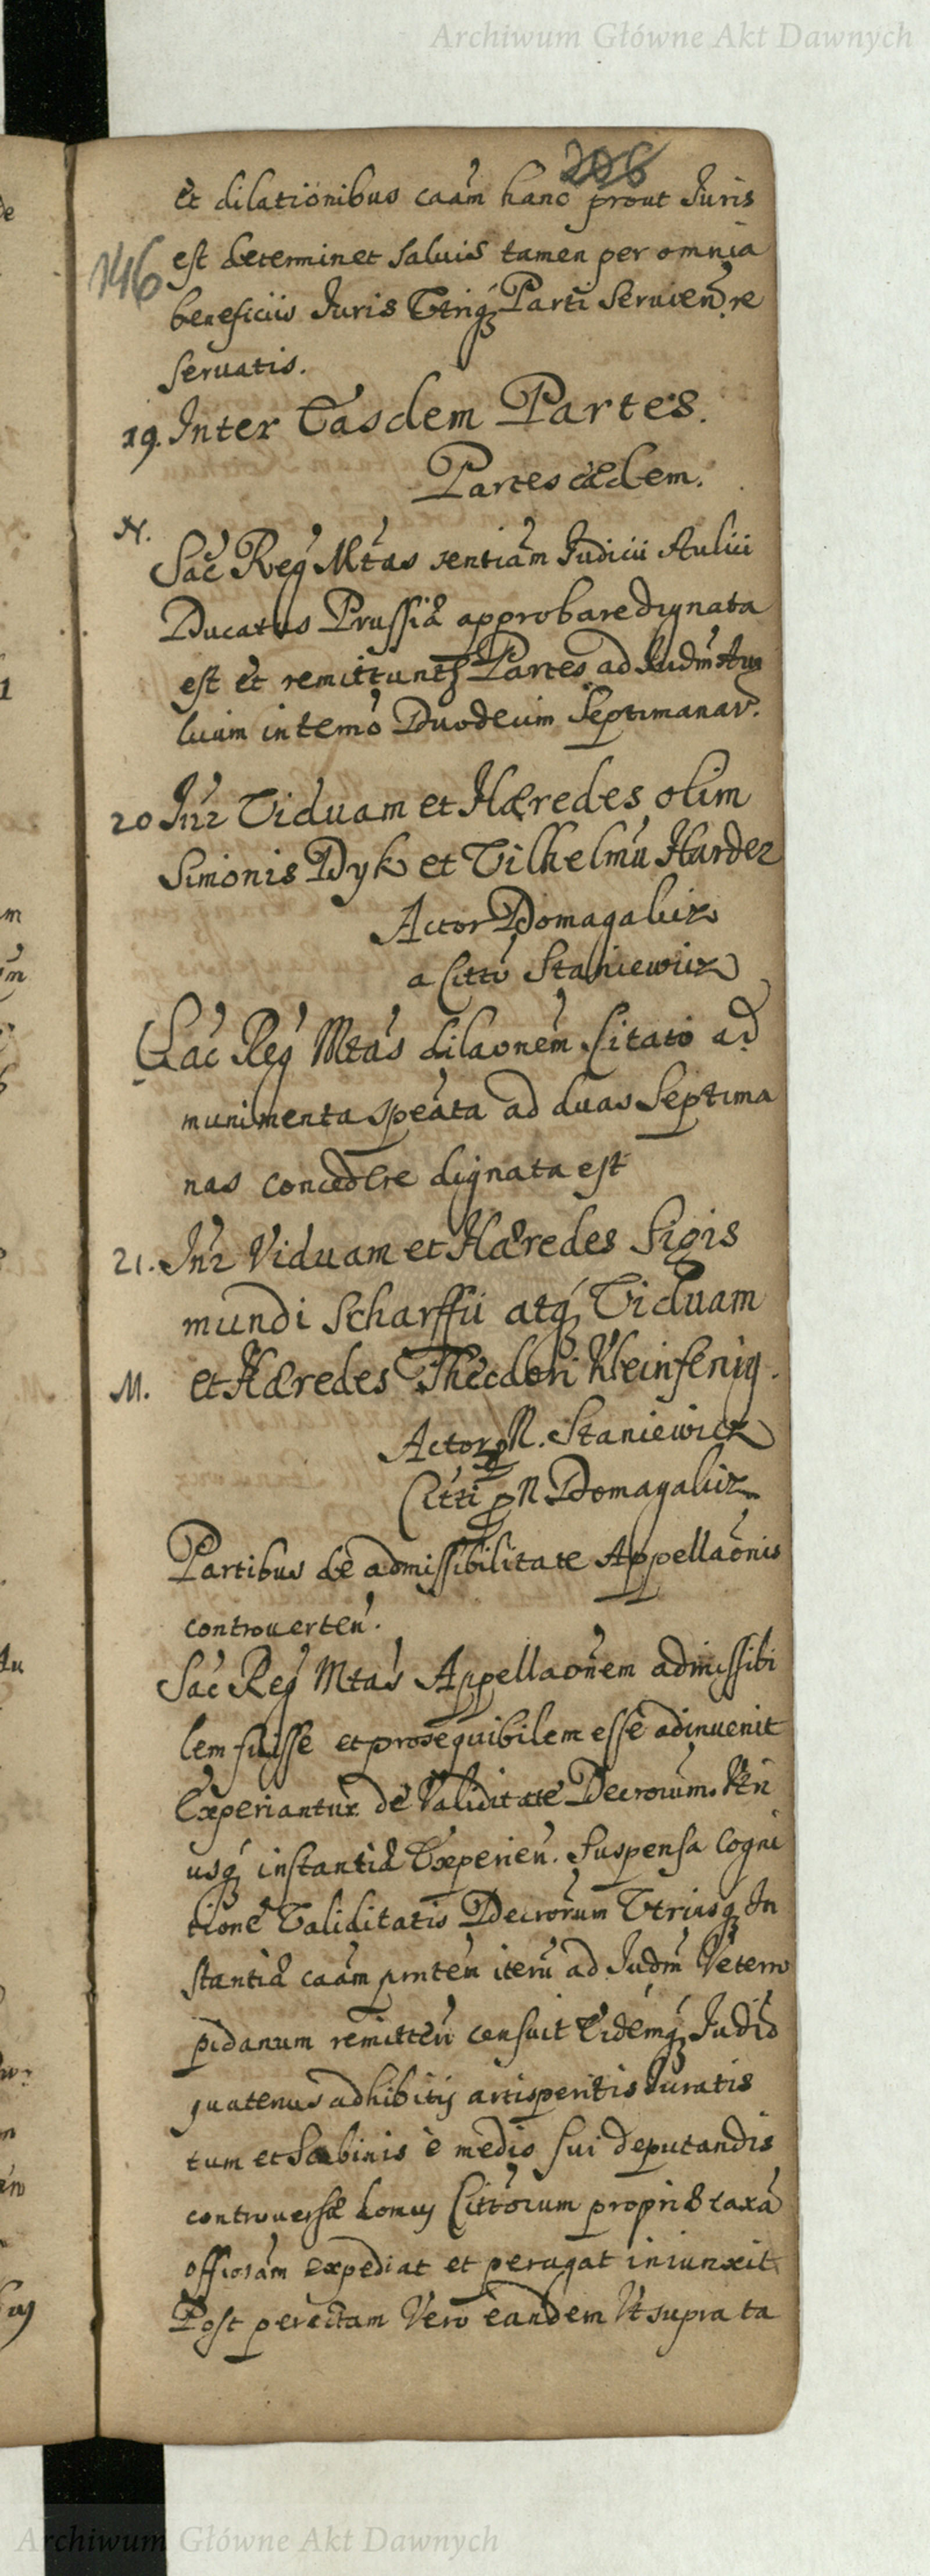 Archiwum Główne Akt Dawnych
206
et dilationibus caām hanc prout Juris
146
est determinet salvis tamen per omnia
beneficiis Juris Utriq; Parti servien̄ re
servatis.
19. Inter Easdem Partes.
Partes eædem.
N.
Sac Reg Mtas sentiām Judicii Aulici
Ducatus Prussiæ approbare dignata
est et remittunt Partes ad Judm Au
licum in termō Duodecim Septimanar.
20 Inr Viduam et Hæredes olim
Simonis Dyk et Vilhelmū Harder
Actor Domagalicz
a Citti Staniewicz
Sac Reg Mtas dilaonem Citato ad
munimenta speāta ad duas Septima
nas concedere dignata est
21. Inr Viduam et Hæredes Sigis
mundi Scharffii atq; Viduam
M. et Hæredes Theodori Kleinfenig.
Actor p N. Staniewicz
Citti p N Domagalicz
Partibus de admissibilitate Appellaōnis
controverten.
Sac Reg Mtas Appellaonem admissibi
lem fuisse et prosequibilem esse adinvenit
Experiantur de Validitate Decrorum.
usq; instantiæ Experien. Suspensa Cogni
tione Validitatis Decrorum Utriusq; In
stantiæ caām pnten iterū ad Judm Vetero
pidanum remitten censuit Eidemq; Judio
quatenus adhibitis artisperitis Juratis
tum et Scabinis e medio sui deputandis
controversæ domus Cittorum propriæ taxā
officiosam expediat et peragat iniunxit
Post peractam Vero eandem Ut supra ta
Archiwum Główne Akt Dawnych